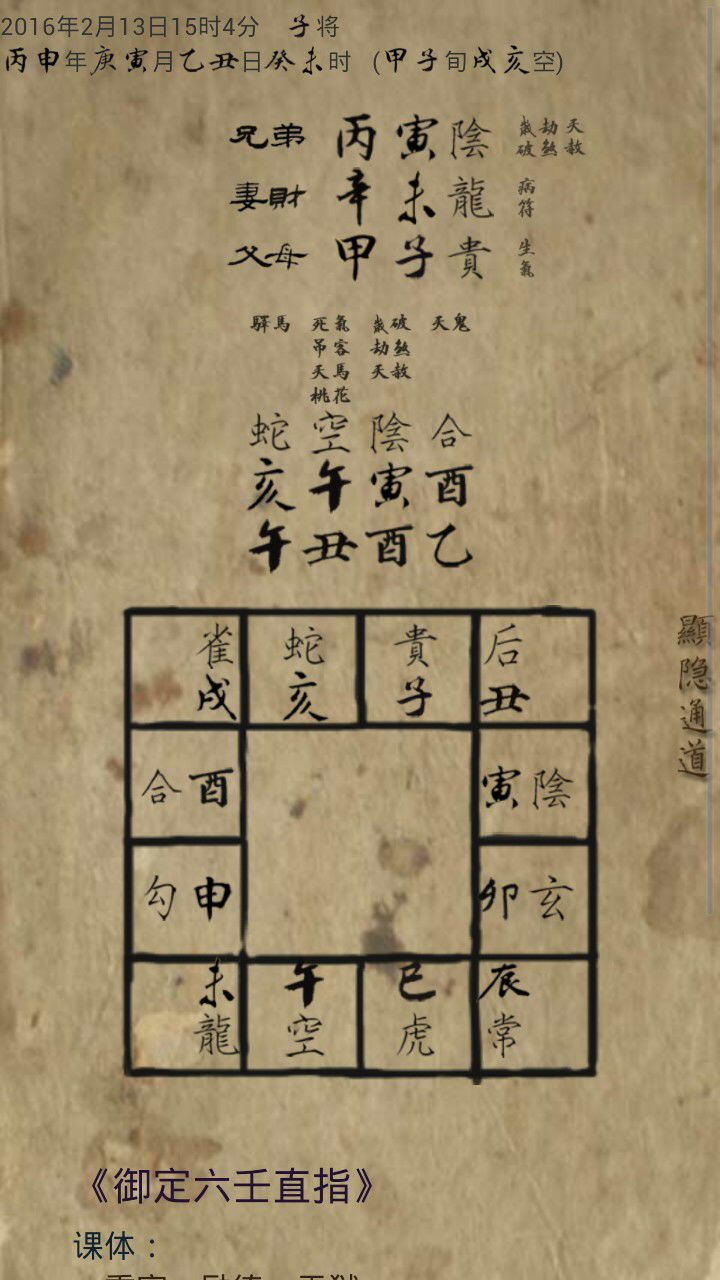 2016年2月13日15时4分 子将
丙申年庚寅月乙丑日癸未时 (甲子旬戌亥空)
兄弟 丙 寅 陰 歲破 劫煞 天赦
妻財 辛 未 龍 病符
父母 甲 子 貴 生氣
驛馬 死氣 歲破 天鬼
吊客 劫煞
天馬 天赦
桃花
蛇 空 陰 合
亥 午 寅 酉
午 丑 酉 乙
雀 蛇 貴 后
戌 亥 子 丑
合 酉 寅 陰
勾 申 卯 玄
未 午 巳 辰
龍 空 虎 常
顯隐通道
《御定六壬直指》
课体：